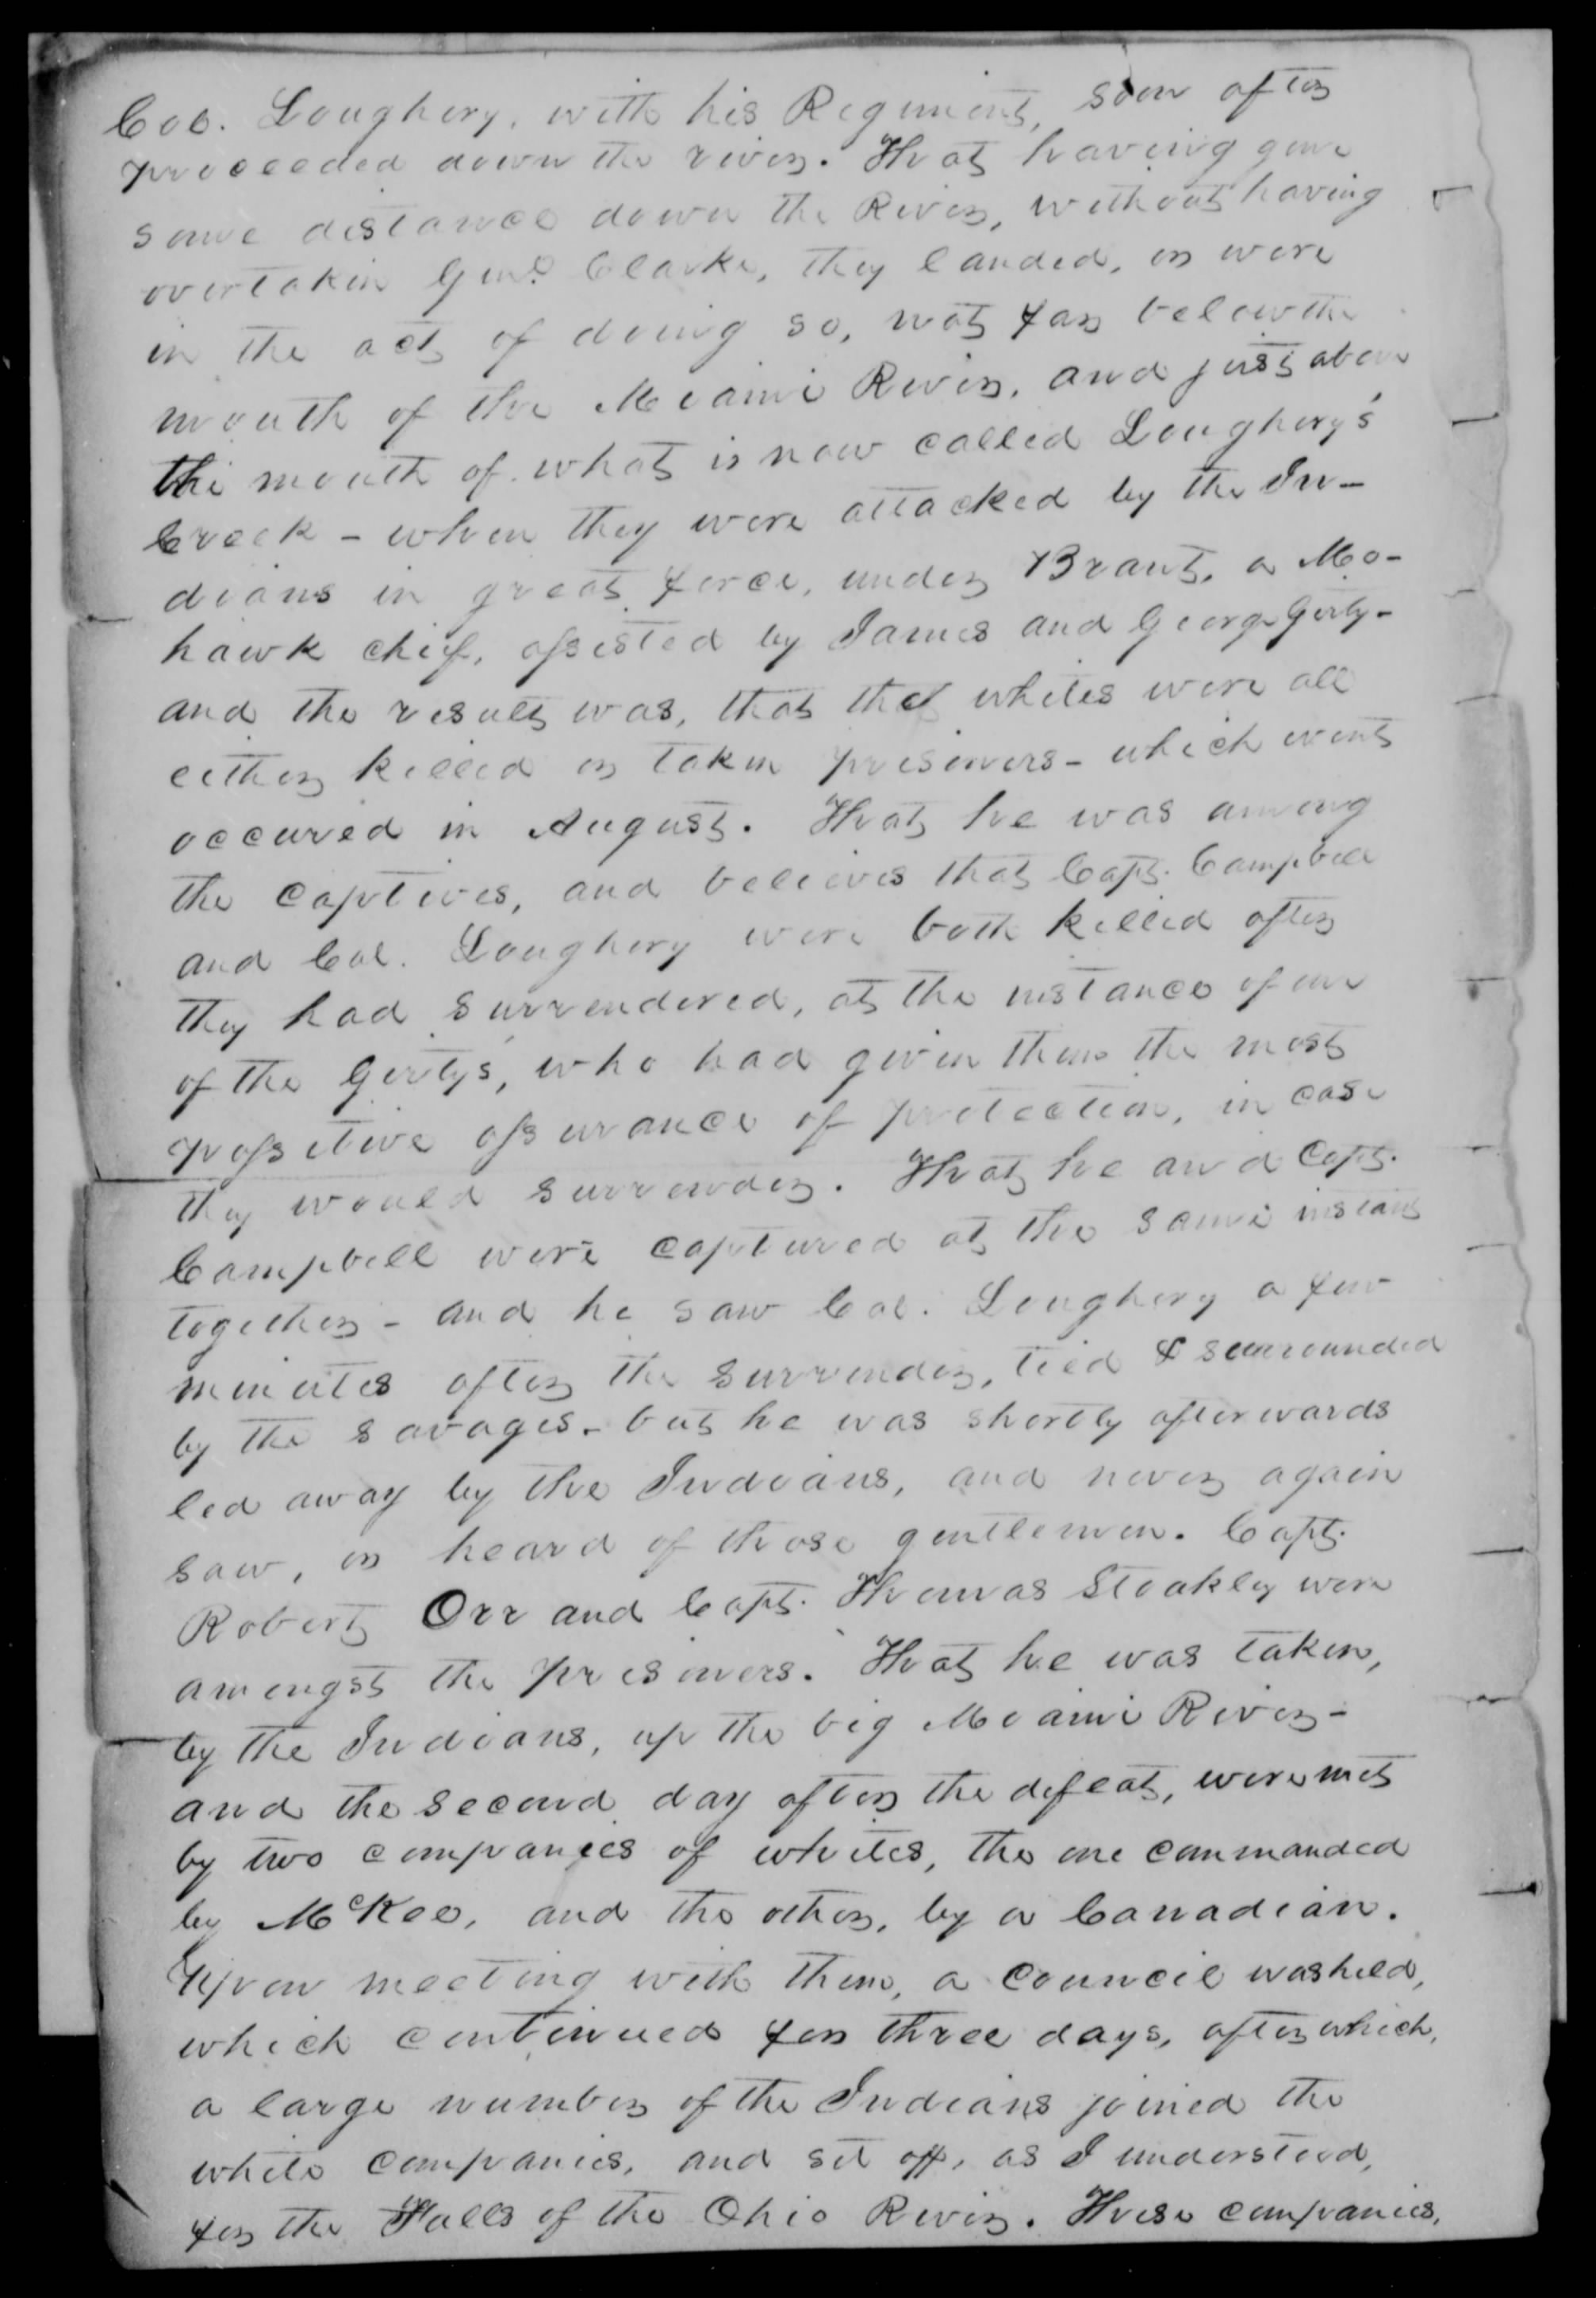 Col. Loughery, with his Regiment, soon after
proceeded down the river. That having gone
some distance down the River, without having
overtaken Genl. Clarke, they landed, or were
in the act of doing so, not far below the
mouth of the Meiami River, and just above
the mouth of what is now called Loughery's
Creek - when they were attacked by the In-
dians in great force, under Brant, a Mo-
hawk chief, assisted by James and George Girty -
and the result was, that the whites were all
either killed or taken prisoners - which event
occured in August. That he was among
the captives, and believes that Capt. Campbell
and Col. Loughery were both killed after
they had surrendered, at the instance of one
of the Girty's, who had given them the most
possitive assurance of protection, in case
they would surrender. That he and Capt.
Campbell were captured at the same instant
together - and he saw Col. Loughery a few
minutes after the surrender, tied & surrounded
by the savages - but he was shortly afterwards
led away by the Indians, and never again
saw, or heard of those gentlemen. Capt.
Robert Orr and Capt. Thomas Stoakley were
amongst the prisoners. That he was taken,
by the Indians, up the big Meiami River -
and the second day after the defeat, were met
by two companies of whites, the one commanded
by McKee, and the other, by a Canadian.
Upon meeting with them, a council was held,
which continued for three days, after which,
a large number of the Indians joined the
white companies, and set off, as I understood,
for the Falls of the Ohio River. These companies,